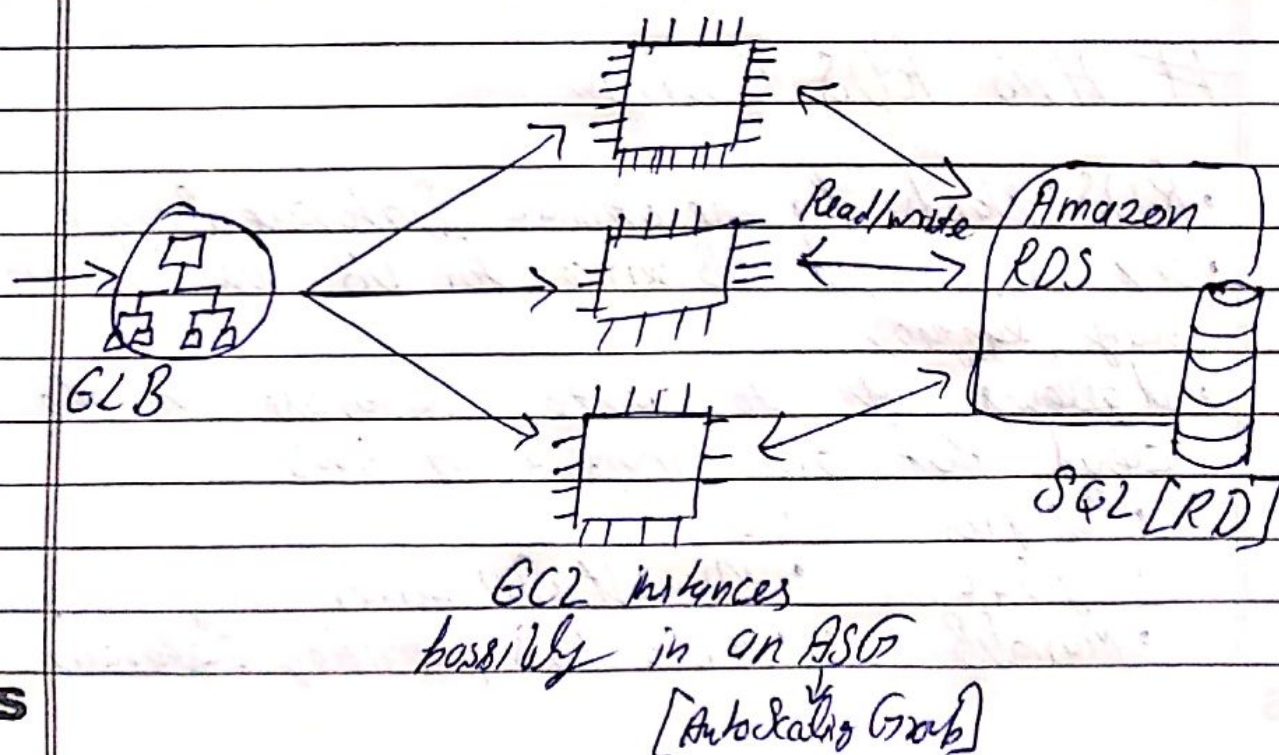 Read/write
Amazon
RDS
ELB
SQL [RD]
EC2 instances
possibly in an ASG
[AutoScaling Group]
s